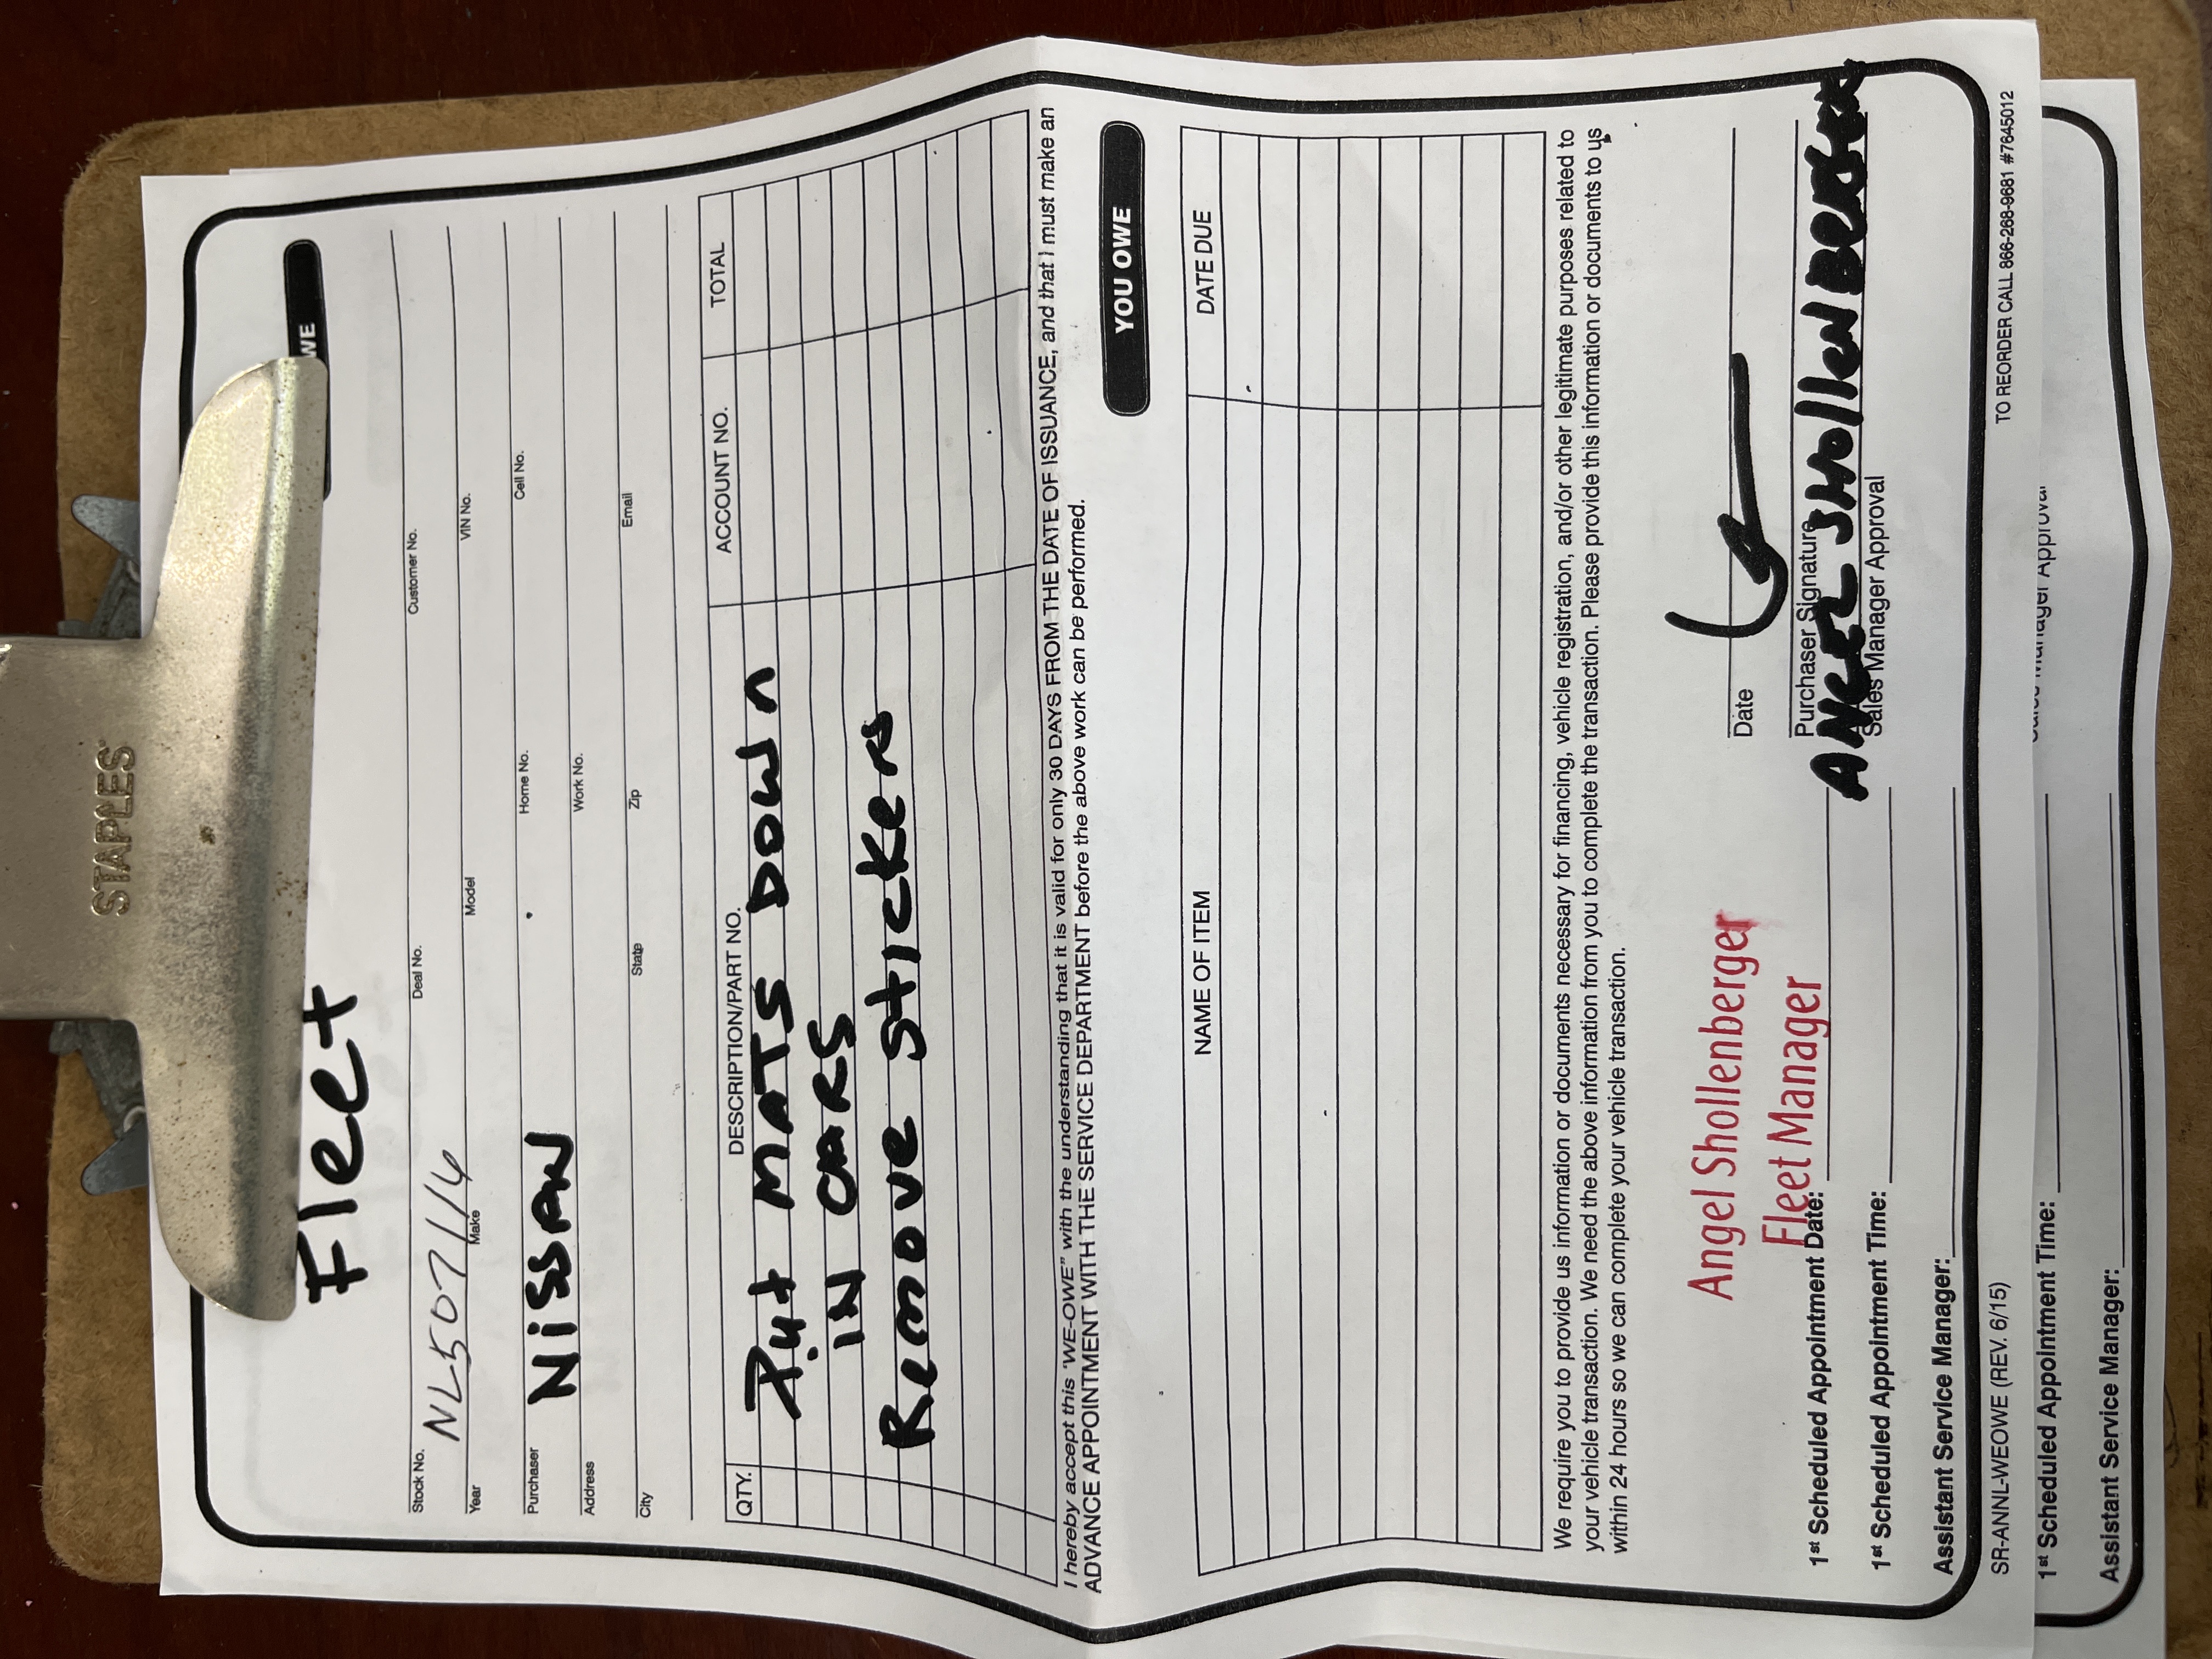 STAPLES
Fleet
WE
Stock No. Deal No. Customer No.
NL507114
Year Make Model VIN No.
Purchaser Nissan Home No. Cell No.
Address Work No.
City State Zip Email
QTY. DESCRIPTION/PART NO. ACCOUNT NO. TOTAL
Put MATS DOWN
IN CARS
Remove stickers
I hereby accept this "WE-OWE" with the understanding that it is valid for only 30 DAYS FROM THE DATE OF ISSUANCE, and that I must make an
ADVANCE APPOINTMENT WITH THE SERVICE DEPARTMENT before the above work can be performed.
YOU OWE
NAME OF ITEM DATE DUE
We require you to provide us information or documents necessary for financing, vehicle registration, and/or other legitimate purposes related to
your vehicle transaction. We need the above information from you to complete the transaction. Please provide this information or documents to us
within 24 hours so we can complete your vehicle transaction.
Angel Shollenberger
Fleet Manager
Date
1st Scheduled Appointment Date: Purchaser Signature
ANGEL SHOllENBERGER
1st Scheduled Appointment Time: Sales Manager Approval
Assistant Service Manager:
SR-ANNL-WEOWE (REV. 6/15) TO REORDER CALL 866-268-9681 #7645012
1st Scheduled Appointment Time: Sales Manager Approval
Assistant Service Manager: